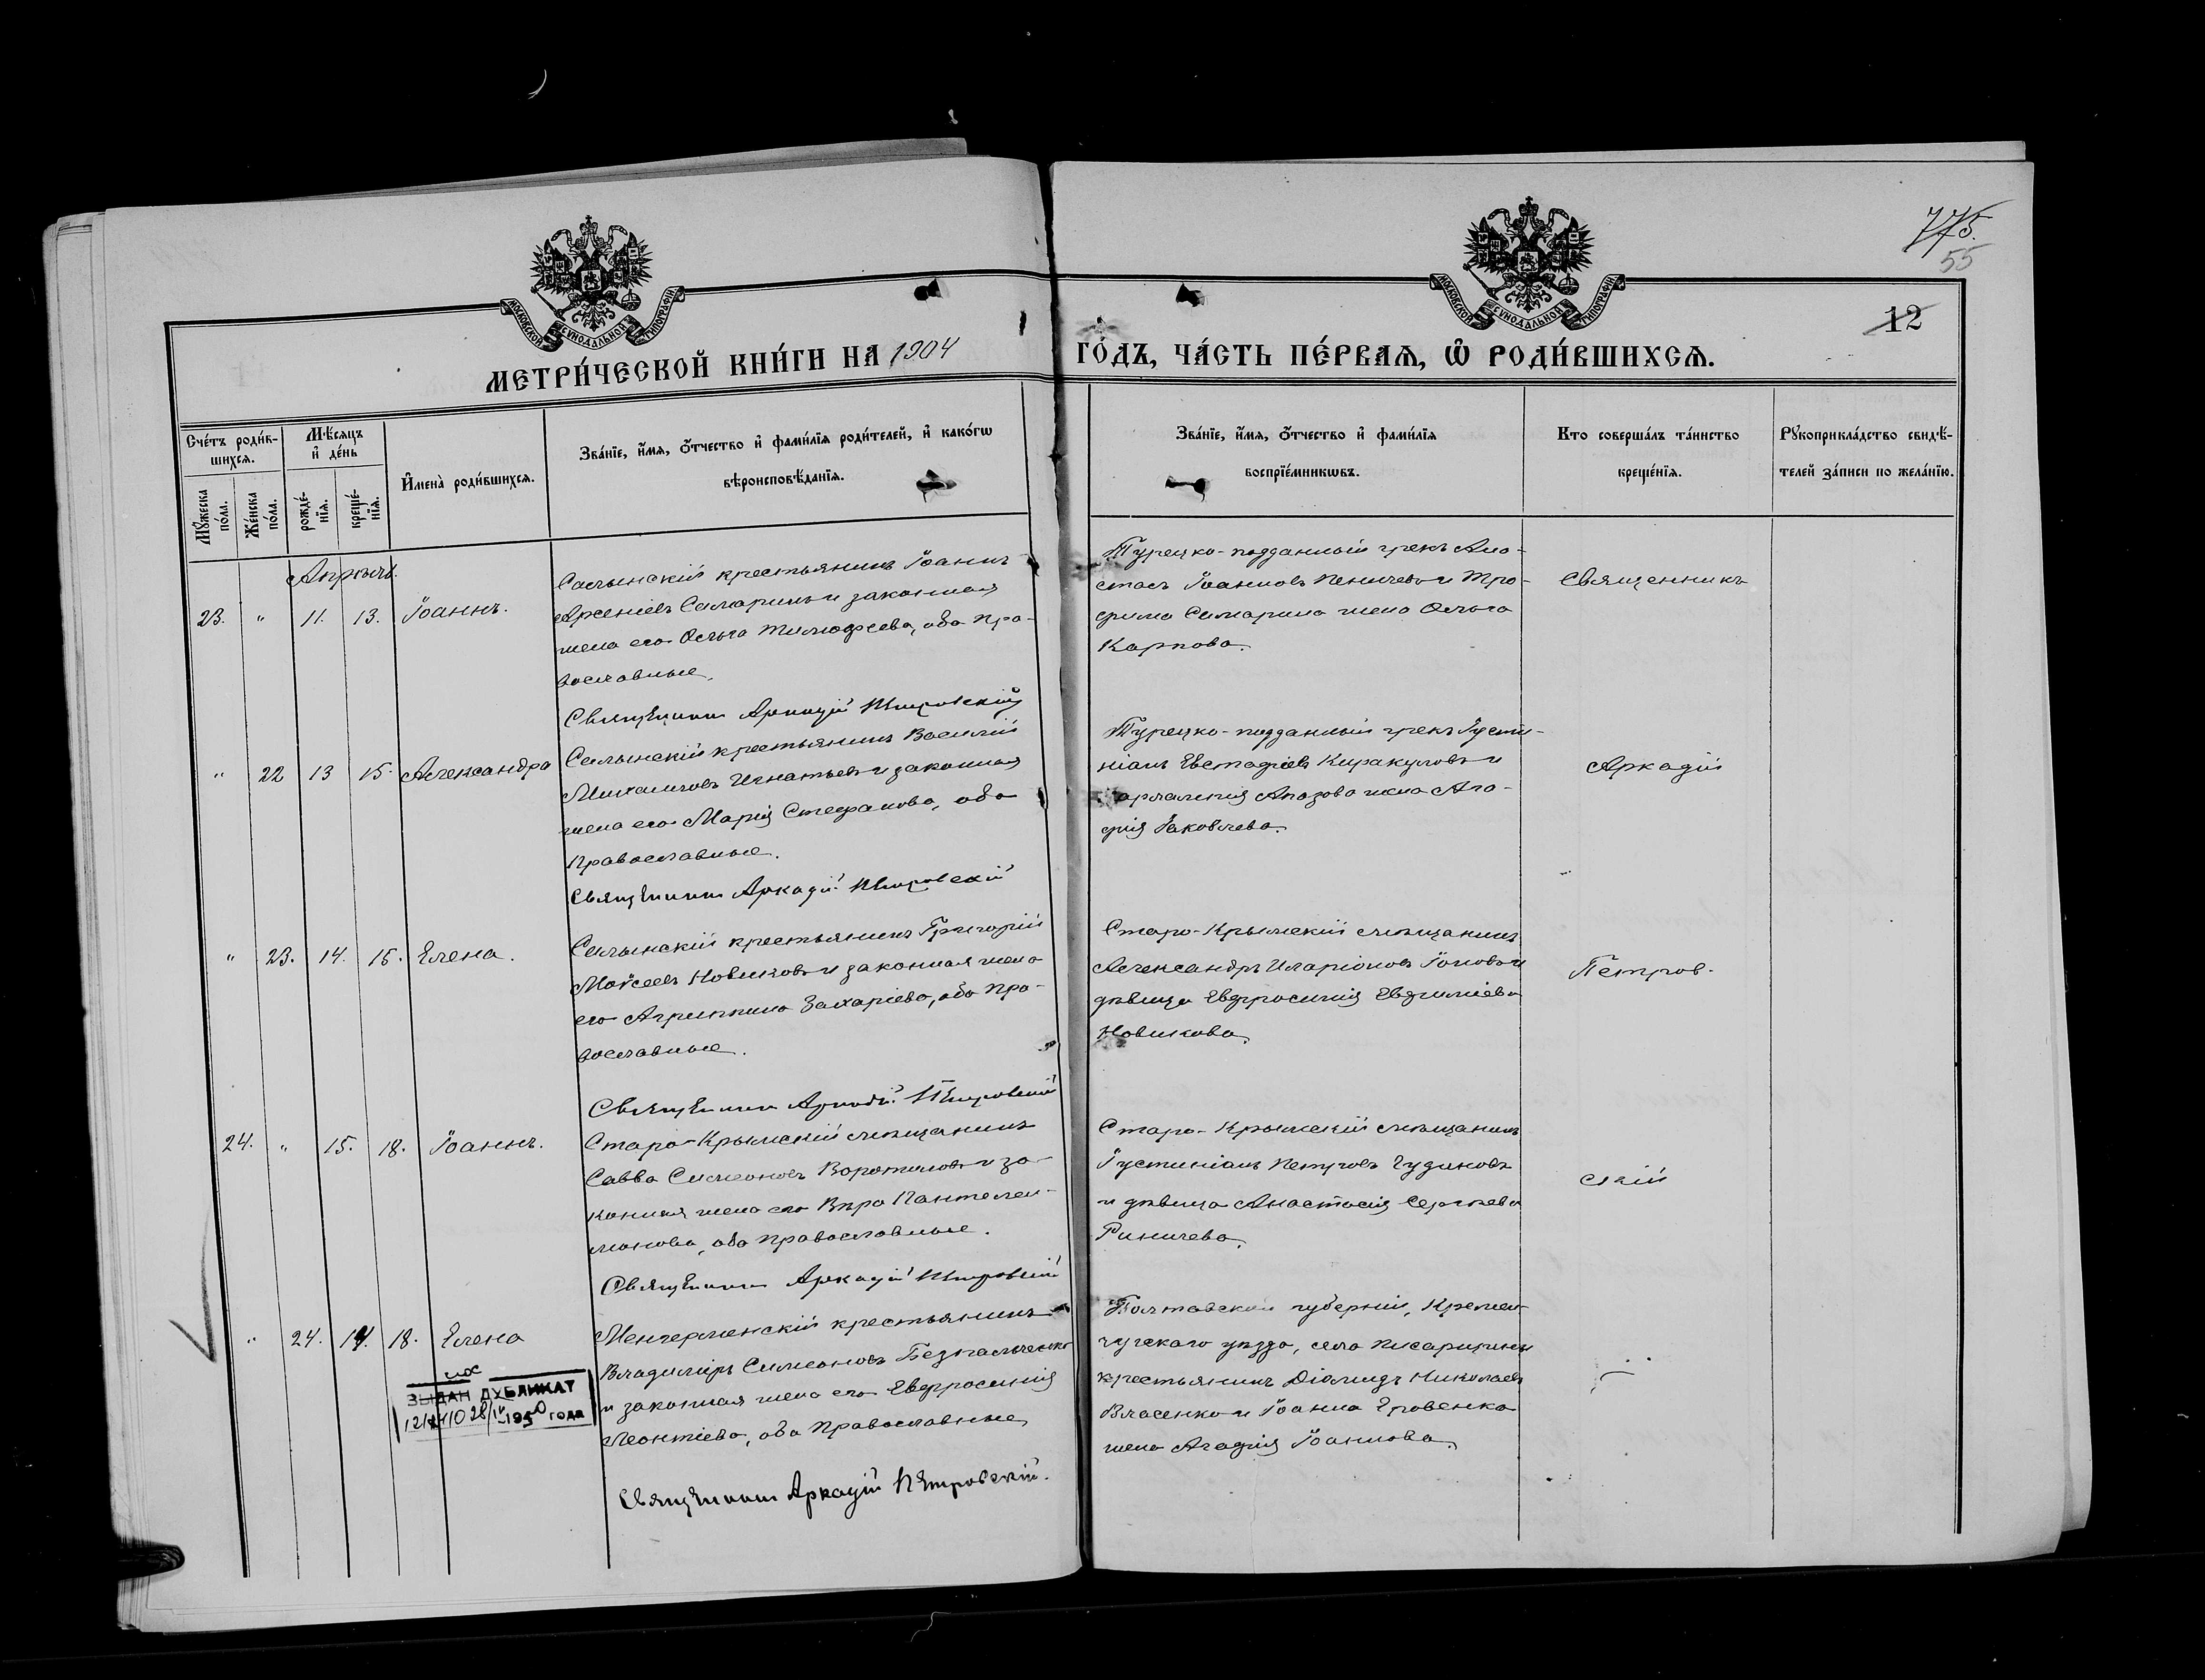 775.
55
12
МОСКОВСКОЙ СѴНОДАЛЬНОЙ ТИПОГРАФІИ
МОСКОВСКОЙ СѴНОДАЛЬНОЙ ТИПОГРАФІИ
МЕТРИ́ЧЕСКОЙ КНИ́ГИ НА 1904 ГО́ДЪ, ЧА́СТЬ ПЕ́РВАѦ, Ѽ РОДИ́ВШИХСѦ.
Сче́тъ роди́в-
шихсѧ.
Мꙋ́жеска по́ла.
Же́нска по́ла.
Мѣ́сѧцъ
и҆ де́нь
рожде́-
нїѧ.
креще́-
нїѧ.
И҆мена̀ роди́вшихсѧ.
Зва́нїе, и҆́мѧ, ѻ҆́тчество и҆ фами́лїѧ роди́телей, и҆ како́гѡ
вѣроисповѣ́данїѧ.
Зва́нїе, и҆́мѧ, ѻ҆́тчество и҆ фами́лїѧ
воспрїе́мникѡвъ.
Кто соверша́лъ та́инство
креще́нїѧ.
Рꙋкоприкла́дство свидѣ́-
телей за́писи по жела́нїю.
Апрѣль.
23. " 11. 13. Іоаннъ.
Салынскій крестьянинъ Іоаннъ
Арсеніевъ Самаринъ и законная
жена его Ольга Тимофеева, оба пра-
вославные.
Священникъ Аркадій Петровскій
Турецко-подданный грекъ Ана-
стасъ Іоанновъ Пеничевъ и Тро-
фима Самарина жена Ольга
Карпова.
Священникъ
" 22 13 15. Александра
Салынскій крестьянинъ Василій
Михаиловъ Игнатьевъ и законная
жена его Марія Стефанова, оба
православные.
Священникъ Аркадій Петровскій
Турецко-подданный грекъ Густи-
ніанъ Евстафіевъ Киракуловъ и
жена Ага-
фія Іаковлева.
Аркадій
" 23. 14. 15. Елена.
Салынскій крестьянинъ Григорій
Моѵсеевъ Новиковъ и законная жена
его Агриппина Захаріева, оба пра-
вославные.
Священникъ Аркадій Петровскій
Старо-Крымскій мѣщанинъ
Александръ Иларіоновъ Поповъ и
дѣвица Евфросинія Евфиміева
Новикова.
Петров-
24. " 15. 18. Іоаннъ.
Старо-Крымскій мѣщанинъ
Савва Симеоновъ Воротиловъ и за-
конная жена его Вѣра Пантелеи-
монова, оба православные.
Священникъ Аркадій Петровскій
Старо-Крымскій мѣщанинъ
Густиніанъ Петровъ Чудиновъ
и дѣвица Анастасія Сергѣева
Риничева.
скій
" 24. 14. 18. Елена
Менгерменскій крестьянинъ
Владиміръ Симеоновъ Безпальченко
и законная жена его Евфросинія
Леонтіева, оба православные
Священникъ Аркадій Петровскій.
Полтавской губерніи, Кремен-
чугскаго уѣзда, села
крестьянинъ Діомидъ Николаевъ
Власенко и Іоанна Яровенка
жена Агафія Іоаннова.
ВЫДАН ДУБЛИКАТ
1950 года